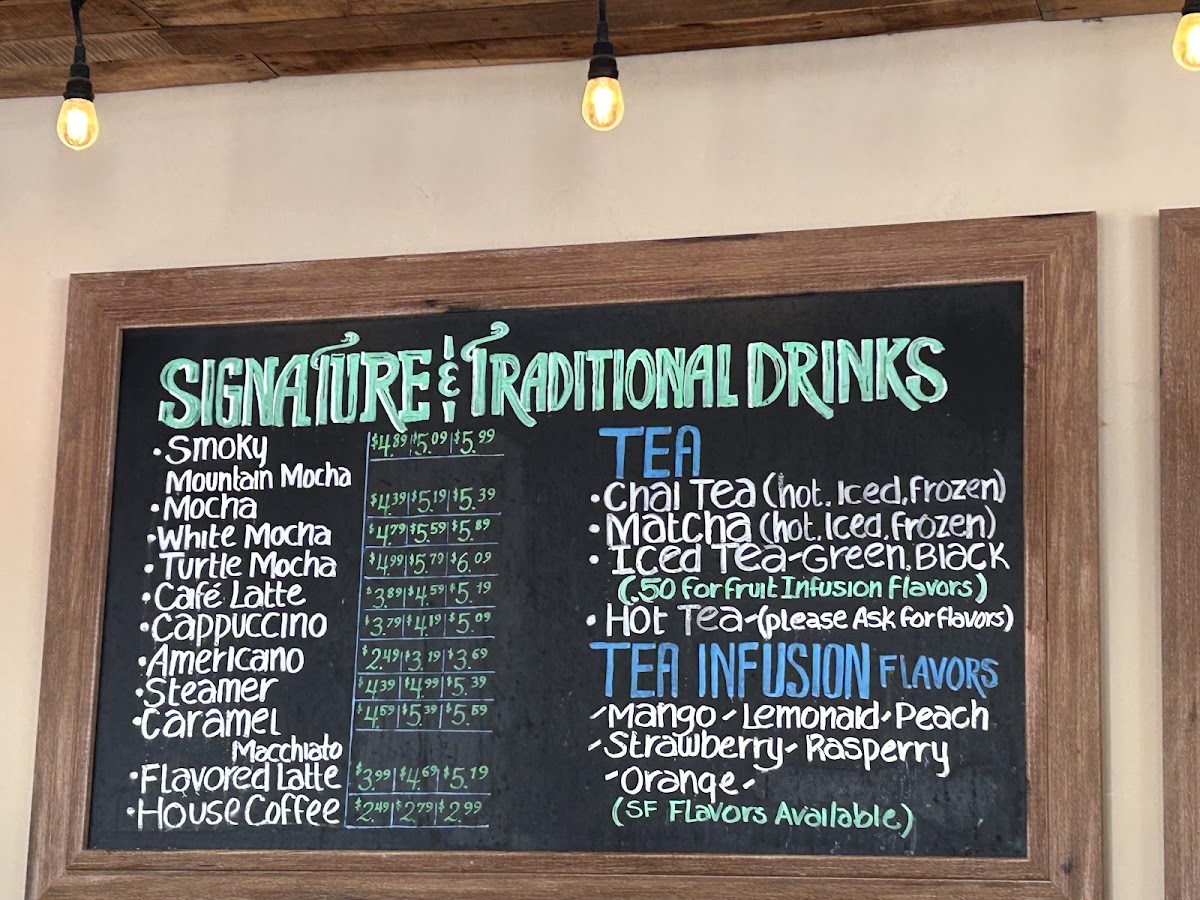 SIGNATURE & TRADITIONAL DRINKS
•Smoky $4.89 $5.09 $5.99
Mountain Mocha
•Mocha $4.39 $5.19 $5.39
•White Mocha $4.79 $5.59 $5.89
•Turtle Mocha $4.99 $5.79 $6.09
•Café Latte $3.89 $4.59 $5.19
•Cappuccino $3.79 $4.19 $5.09
•Americano $2.49 $3.19 $3.69
•Steamer $4.39 $4.99 $5.39
•Caramel $4.59 $5.39 $5.59
Macchiato
•Flavored Latte $3.99 $4.69 $5.19
•House Coffee $2.49 $2.79 $2.99
TEA
•Chai Tea (hot, Iced, Frozen)
•Matcha (hot, Iced, Frozen)
•Iced Tea-Green, Black
(.50 for fruit Infusion Flavors)
•Hot Tea-(please Ask for flavors)
TEA INFUSION FLAVORS
-Mango-Lemonaid-Peach
-Strawberry-Rasperry
-Orange-
(SF Flavors Available)